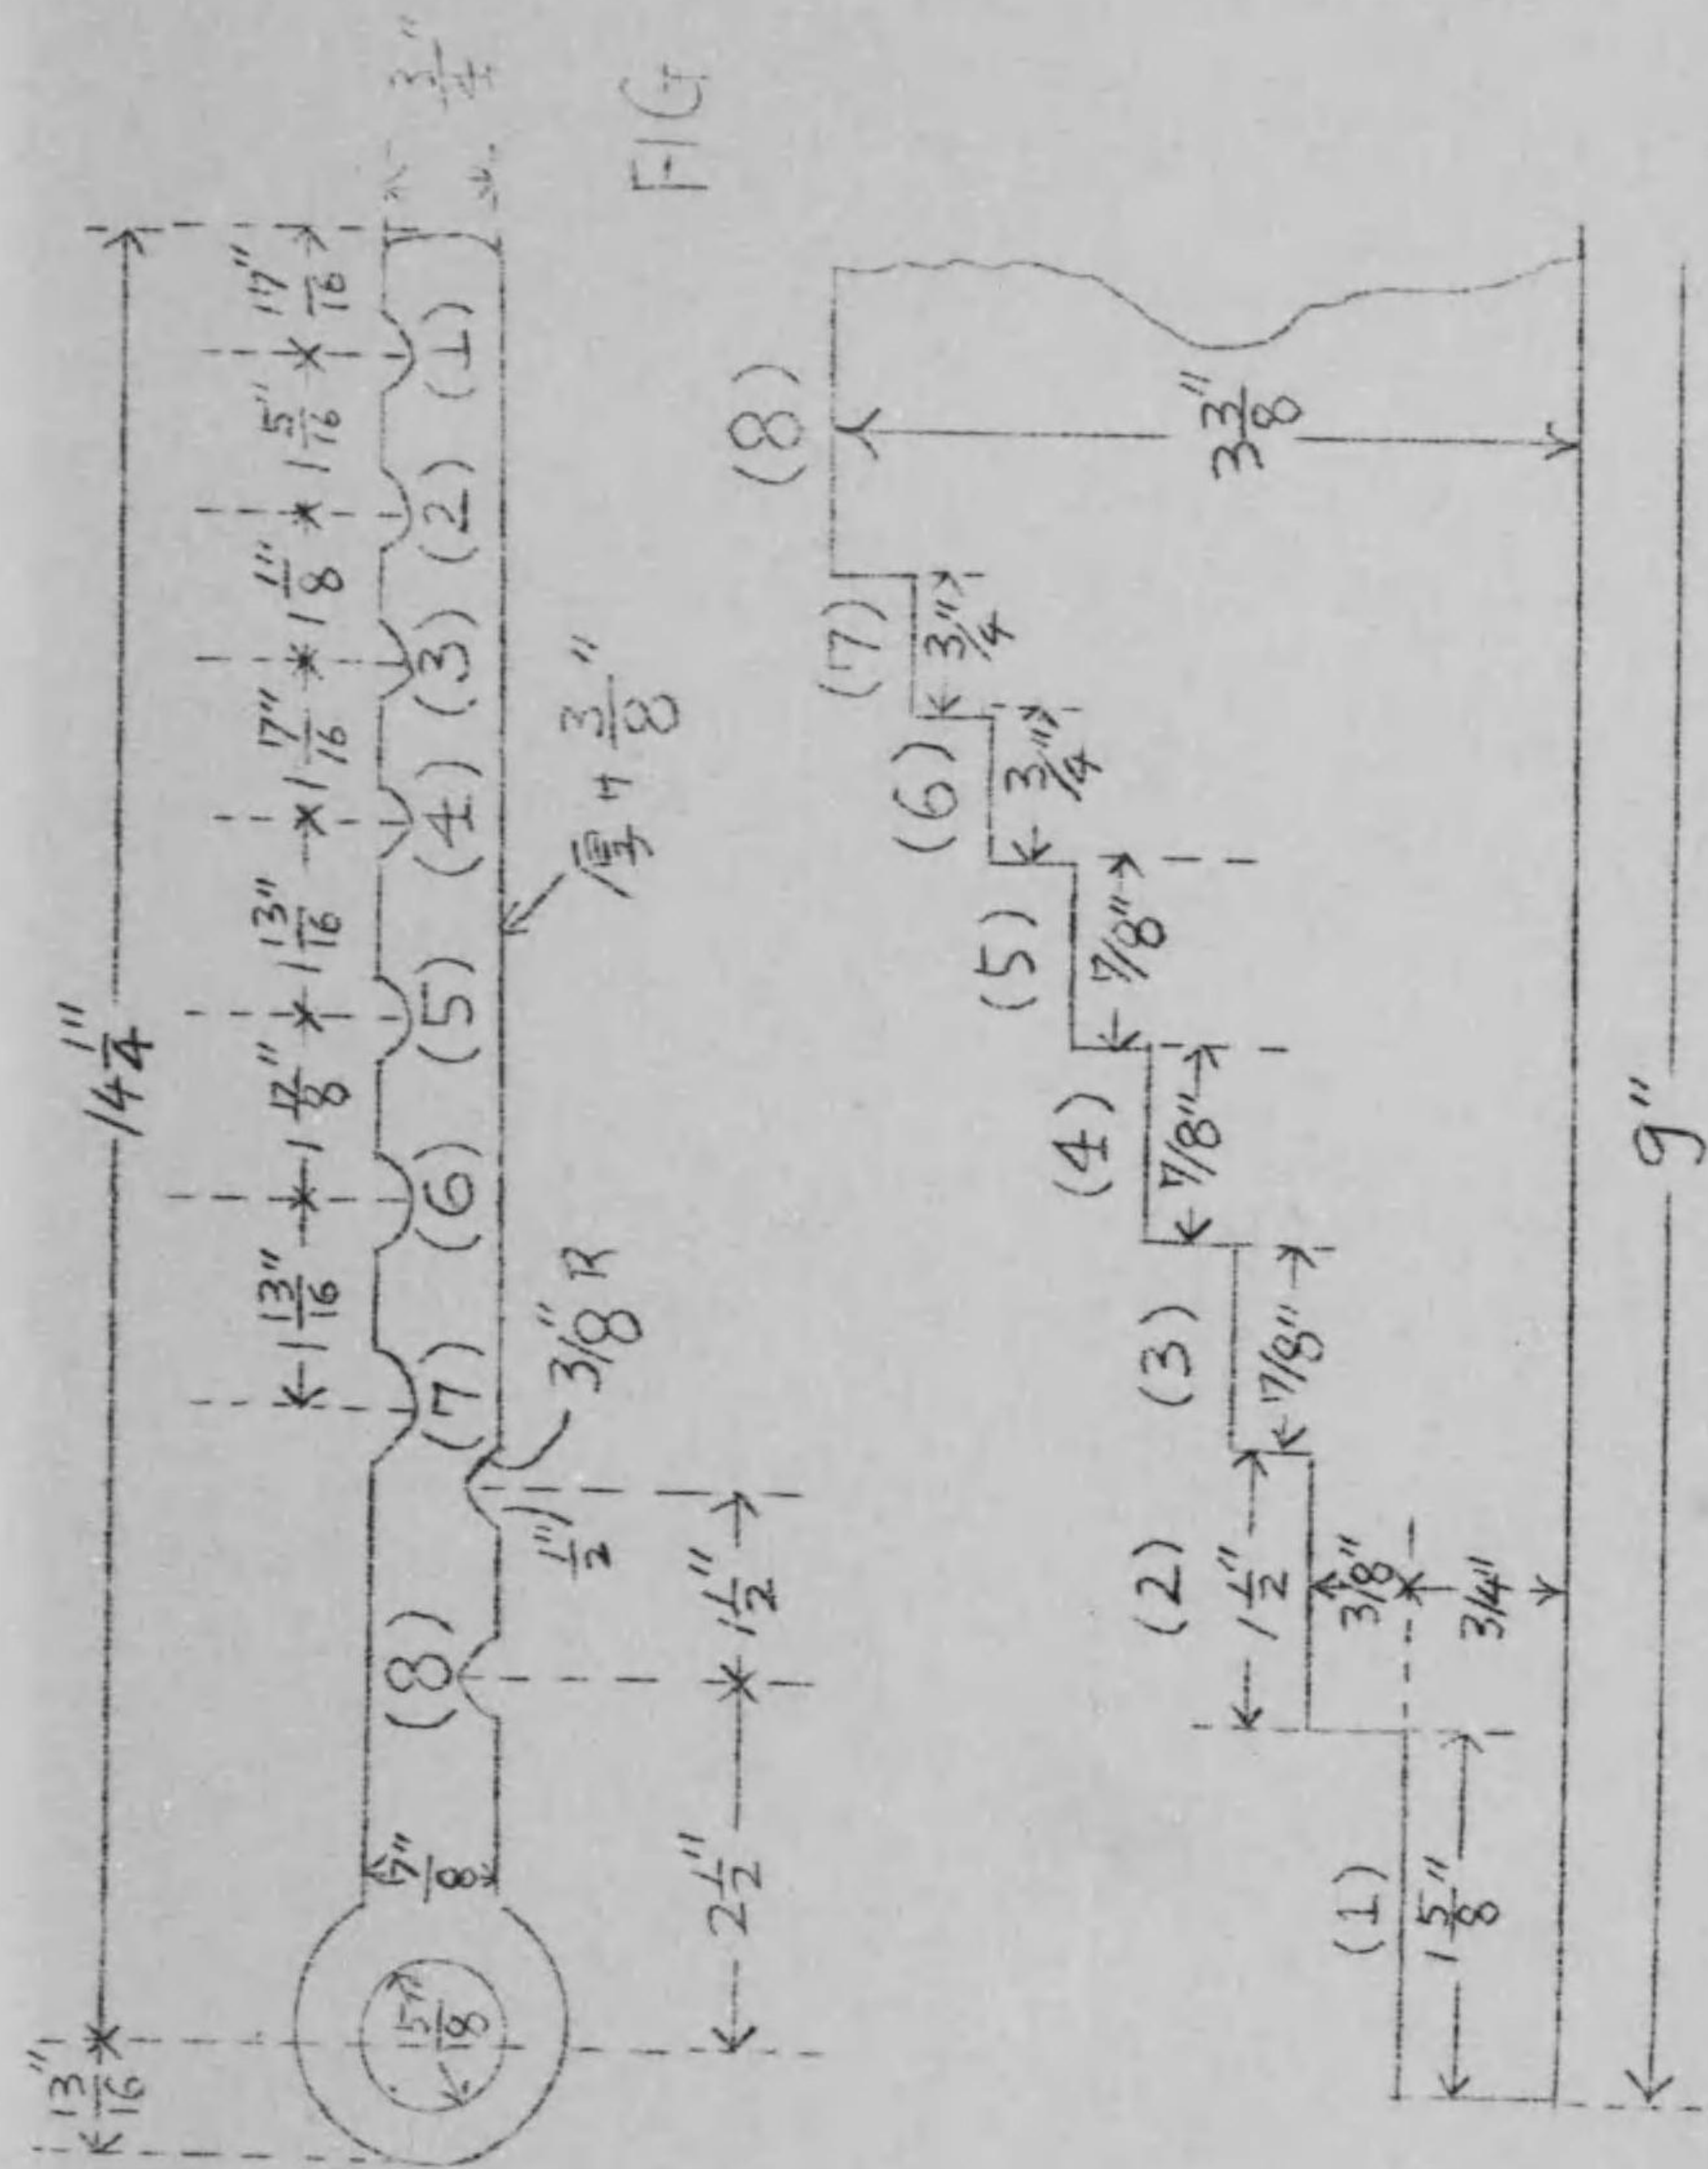 13/16" 14 1/4"
1 13/16" 1 7/8" 1 13/16" 1 7/16" 1 1/8" 1 5/16" 17/16"
3/4"
15/18" 7/8" (8) (7) (6) (5) (4) (3) (2) (1)
1/2" 3/8" R 厚サ 3/8"
2 1/2" 1 1/2"
FIG
(8)
(7)
3/4"
(6)
3/4"
(5)
7/8"
(4)
7/8"
(3)
7/8"
(2)
1 1/2"
3/8"
3/4"
(1)
1 5/8"
3 3/8"
9"